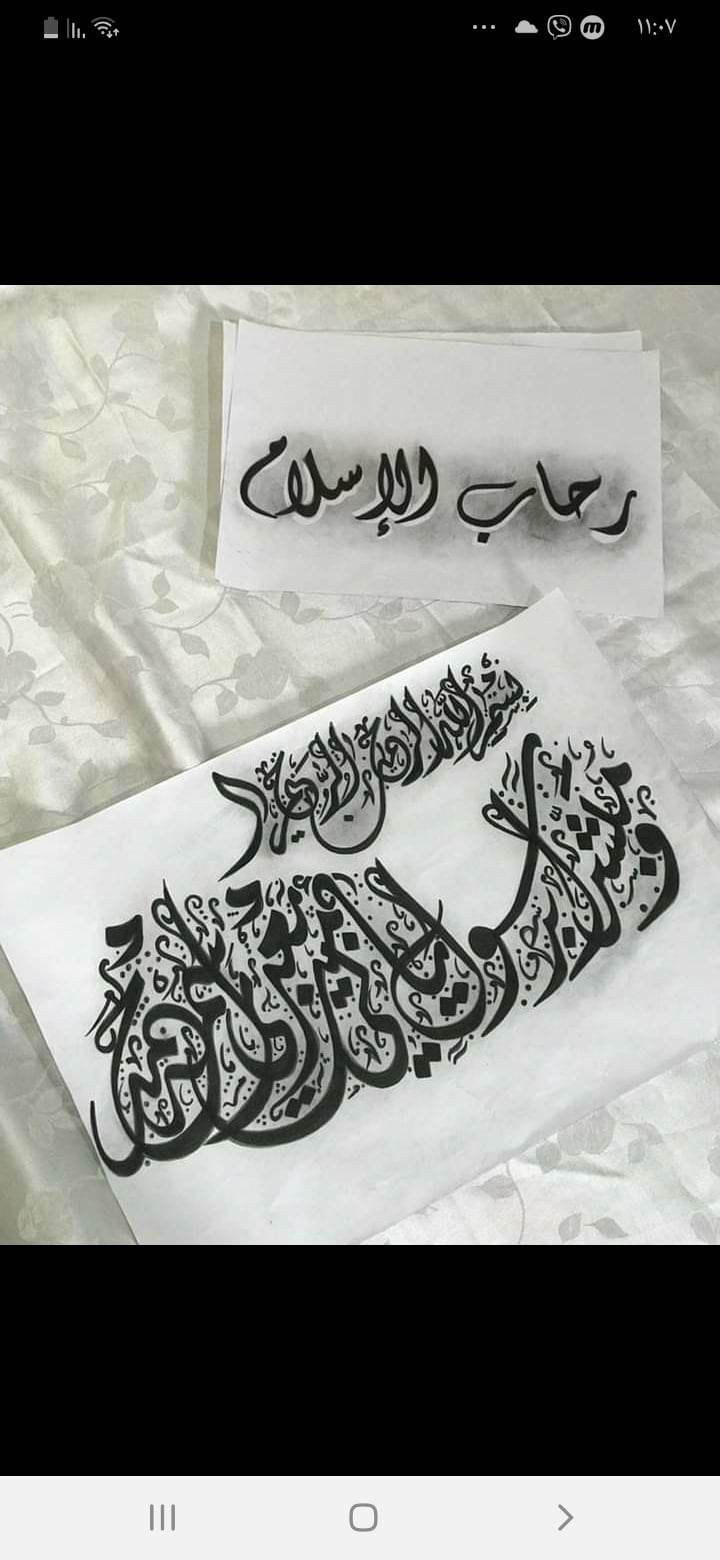 ١١:٠٧
رحاب الإسلام
بسم الله الرحمن الرحيم
ومبشرا برسول يأتي من بعدي اسمه أحمد